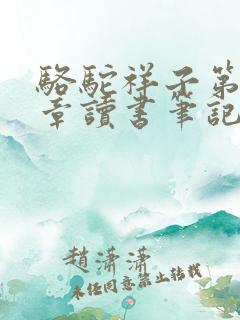 駱駝祥子第
章讀書筆記
趙瀟瀟
未經同意禁止轉載